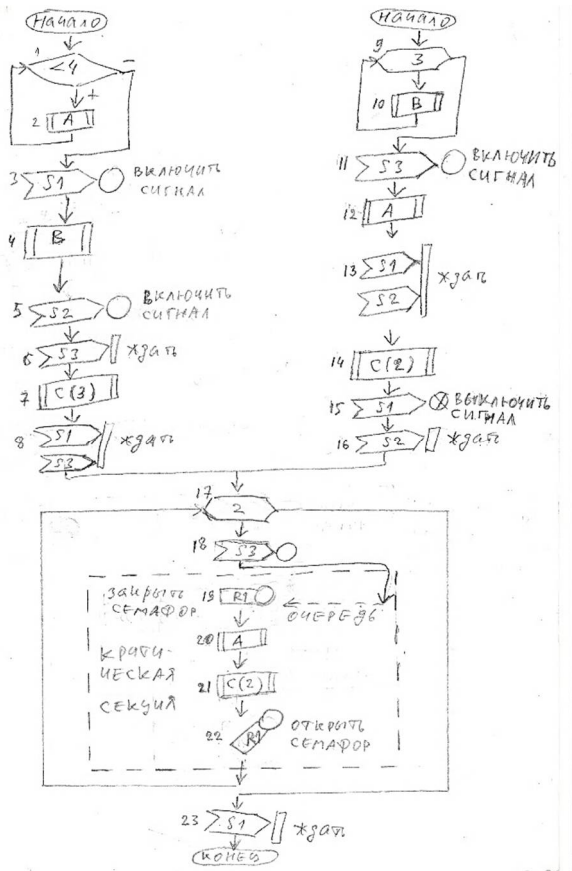 Начало
1
<4
+
−
2 A
3 S1
ВКЛЮЧИТЬ
СИГНАЛ
4 B
5 S2
ВКЛЮЧИТЬ
СИГНАЛ
6 S3 ждать
7 C(3)
8 S1 ждать
S3
Начало
9
3
10 B
11 S3
ВКЛЮЧИТЬ
СИГНАЛ
12 A
13 S1
ждать
S2
14 C(2)
15 S1
ВЫКЛЮЧИТЬ
СИГНАЛ
16 S2 ждать
17
2
18 S3
закрыть
СЕМАФОР
19 R1
ОЧЕРЕДЬ
20 A
КРИТИ-
ЧЕСКАЯ
СЕКЦИЯ
21 C(2)
22 R1
ОТКРЫТЬ
СЕМАФОР
23 S1 ждать
КОНЕЦ